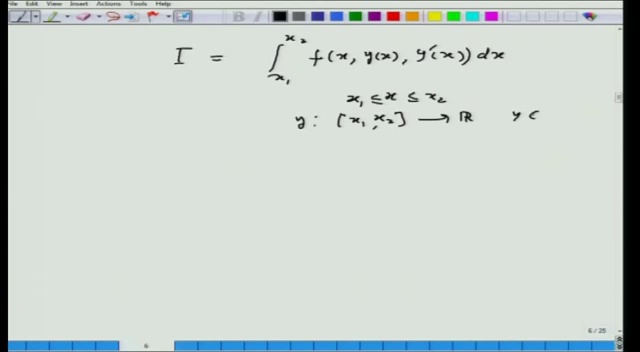 File Edit View Insert Actions Tools Help
I = ∫_{x₁}^{x₂} f(x, y(x), y'(x)) dx
x₁ ≤ x ≤ x₂
y : [x₁, x₂] → ℝ y (
6 / 25
6